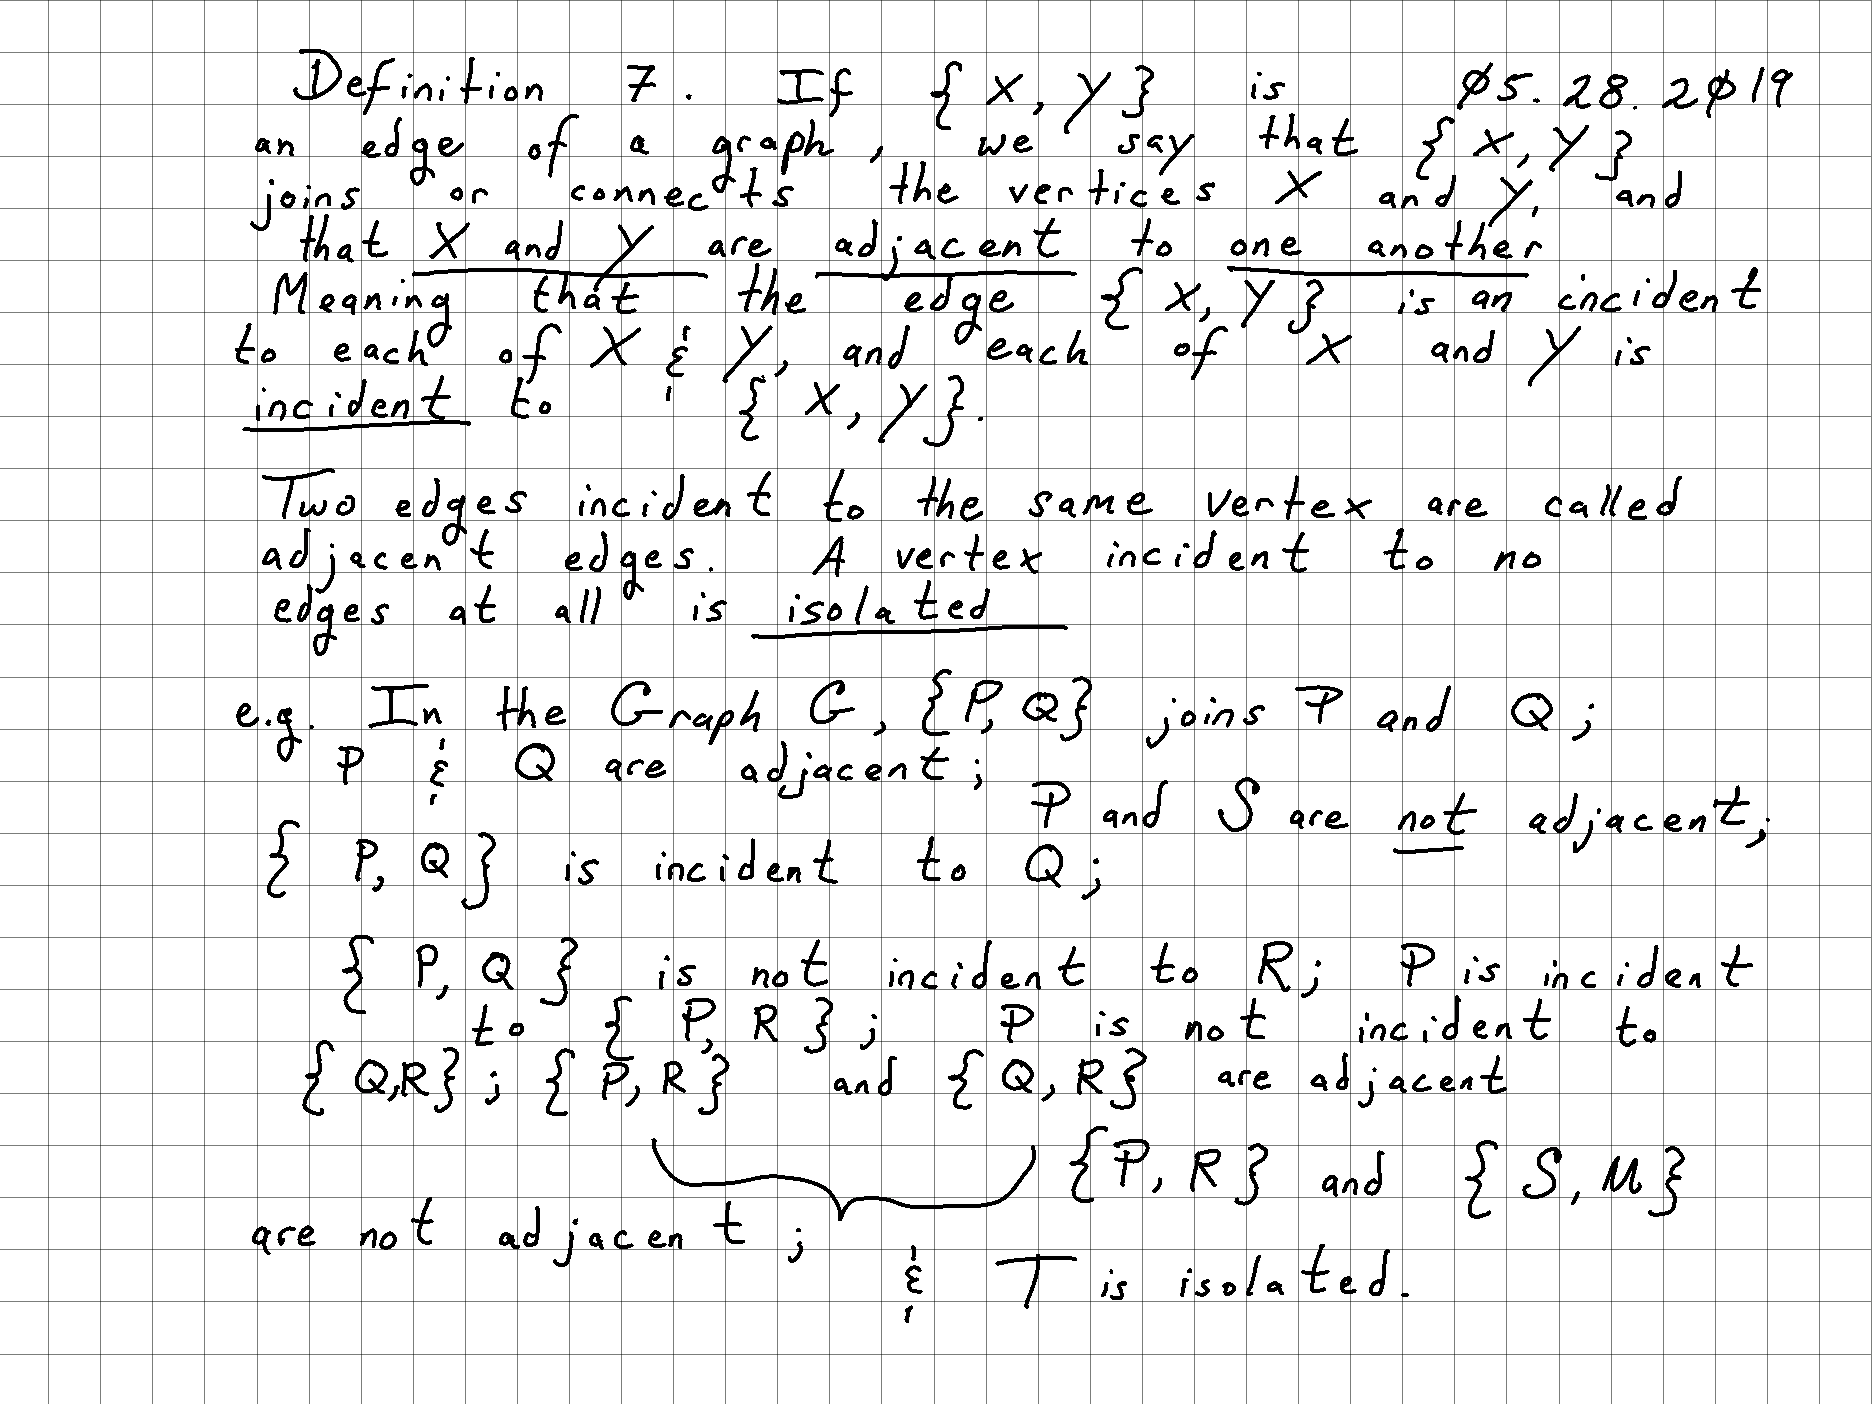 Definition 7. If { X, Y } is 05.28.2019
an edge of a graph, we say that { X, Y }
joins or connects the vertices X and Y, and
that X and Y are adjacent to one another
Meaning that the edge { X, Y } is an incident
to each of X & Y, and each of X and Y is
incident to { X, Y }.
Two edges incident to the same vertex are called
adjacent edges. A vertex incident to no
edges at all is isolated
e.g. In the Graph G, {P, Q} joins P and Q;
P & Q are adjacent;
P and S are not adjacent;
{ P, Q } is incident to Q;
{ P, Q } is not incident to R; P is incident
to { P, R }; P is not incident to
{ Q,R }; { P, R } and { Q, R } are adjacent
{ P, R } and { S, M }
are not adjacent;
& T is isolated.